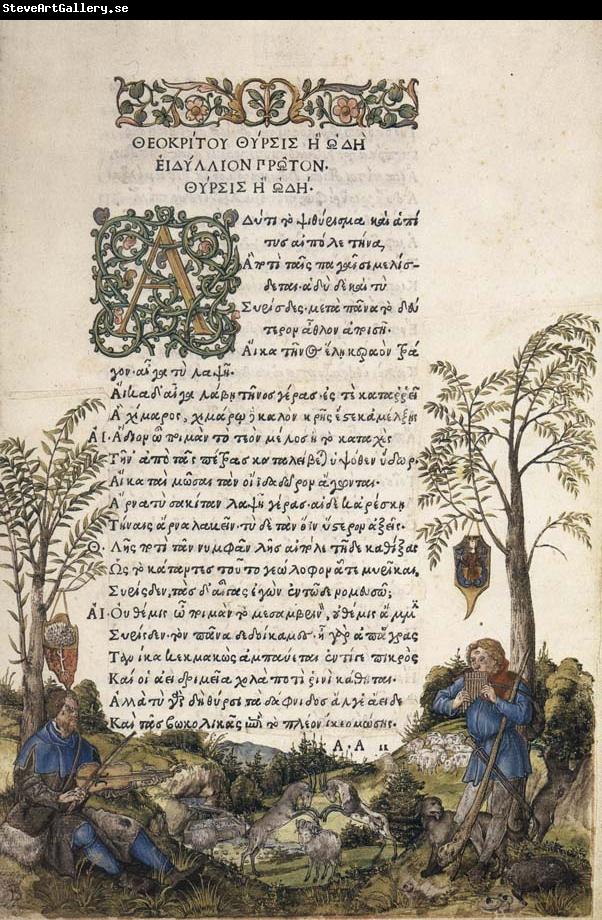 SteveArtGallery.se
ΘΕΟΚΡΊΤΟΥ ΘΎΡΣΙΣ Ἢ ᾨΔῊ
ἘΙΔΎΛΛΙΟΝ ΠΡΩ͂ΤΟΝ·
ΘΎΡΣΙΣ Ἢ ᾨΔΉ·
ΑΔύ τι τὸ ψιθύρισμα καὶ ἁ πί
τυς αἰπόλε τήνα,
Ἁ ποτὶ ταῖς παγαῖσι μελίσ-
δεται. ἁδὺ δὲ καὶ τὺ
Συρίσδες. μετὰ πᾶνα τὸ δεύ
τερον ἆθλον ἀποισῇ.
Αἴκα τῆνος ἕλῃ κεραὸν τρά
γον. αἶγα τὺ λαψῇ.
Αἴκα δ' αἶγα λάβῃ τῆνος γέρας. ἐς τὲ καταρρεῖ
Ἁ χίμαρος, χιμάρω καλὸν κρῆς ἔστε κ' ἀμέλξῃς
ΑΙ. Ἅδιον ὦ ποιμὰν τὸ τεὸν μέλος ἢ τὸ καταχὲς
Τῆν' ἀπὸ τᾶς πέτρας καταλείβεται ὑψόθεν ὕδωρ.
Αἴκα ταὶ μῶσαι τὰν οἴιδα δῶρον ἄγωνται.
Ἄρνα τὺ σακίταν λαψῇ γέρας. αἰ δέ κ' ἀρέσκῃ
Τήναις ἄρνα λαβεῖν. τὺ δὲ τὰν ὄϊν ὕστερον ἀξεῖς.
Θ. Λῇς ποτὶ τᾶν νυμφᾶν λῇς αἰπόλε τῇδε καθίξας
Ὡς τὸ κάταντες τοῦτο γεώλοφον ἅτε μυρῖκαι.
Συρίσδεν, τὰς δ' αἶγας ἐγὼν ἐν τῷδε νομευσῶ;
ΑΙ. Οὐ θέμις ὦ ποιμὰν τὸ μεσαμβρινόν, οὐ θέμις ἄμμιν
Συρίσδεν. τὸν πᾶνα δεδοίκαμες. ἦ γὰρ ἀπ' ἄγρας
Τανίκα κεκμακὼς ἀμπαύεται ἐντί γε πικρὸς
Καὶ οἱ ἀεὶ δριμεῖα χολὰ ποτὶ ῥινὶ κάθηται.
Ἀλλὰ τὺ γὰρ δὴ θύρσι τὰ δάφνιδος ἄλγε' ἄειδε
Καὶ τᾶς βωκολικᾶς ἐπὶ τὸ πλέον ἵκεο μώσης.
Α.Α ii